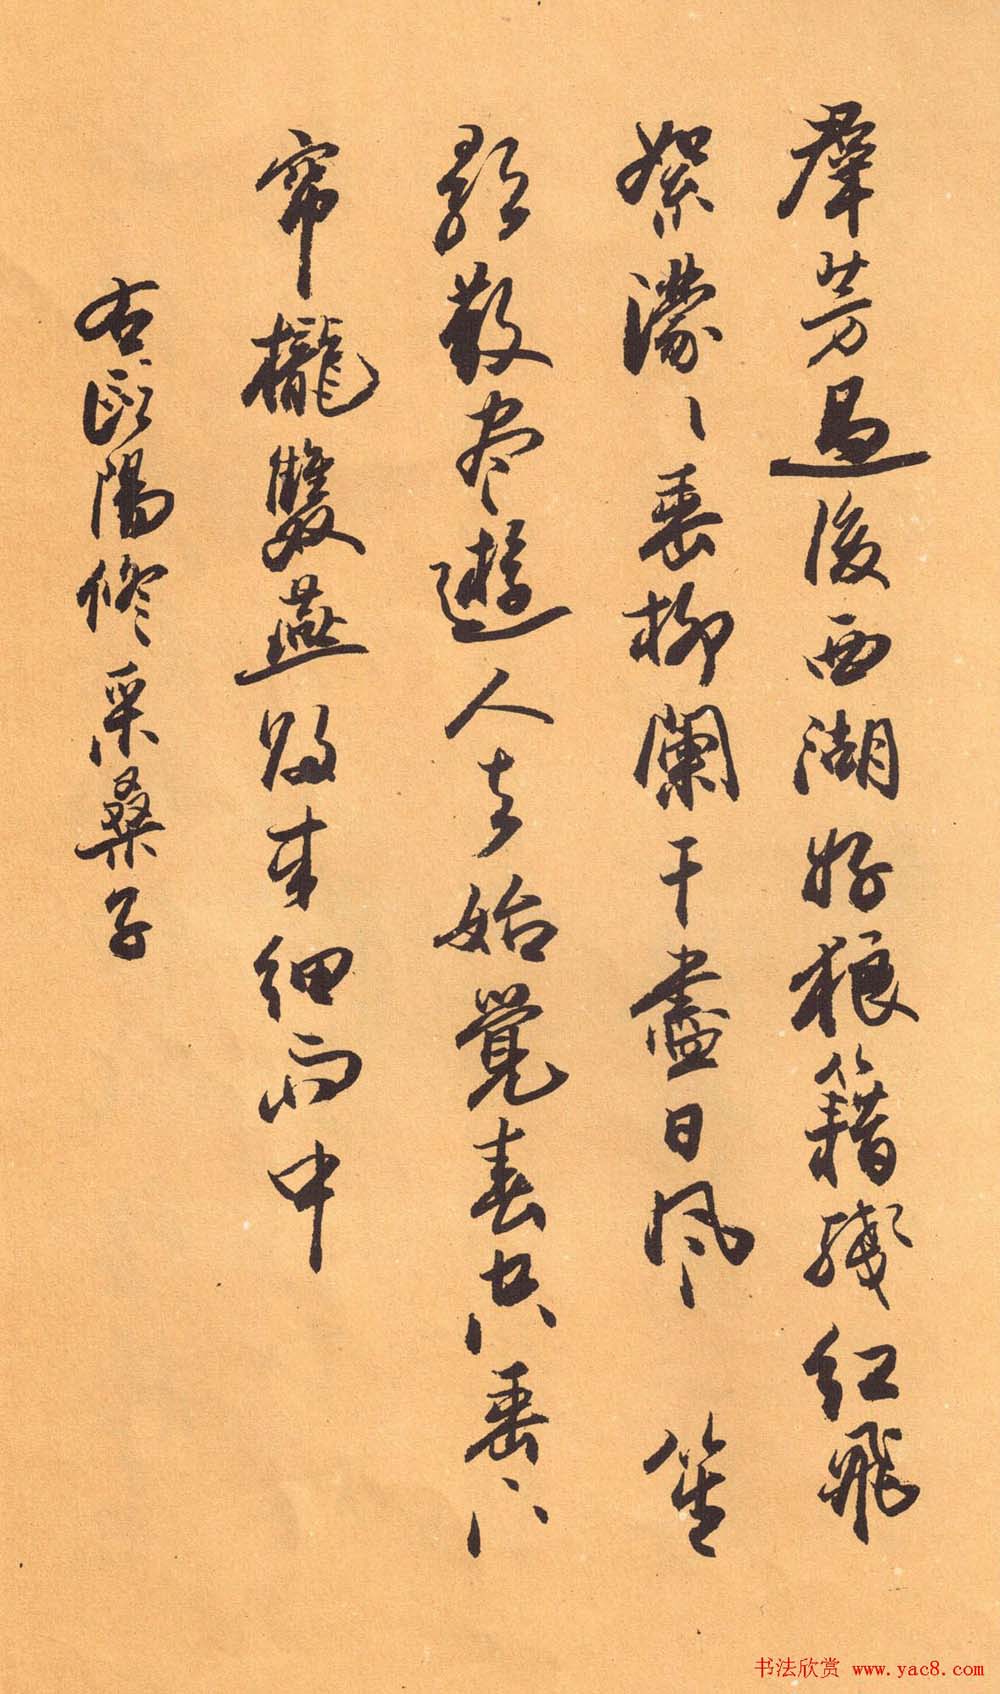 群芳過後西湖好狼籍殘紅飛
絮濛〻垂柳闌干盡日風 笙
歌散尽遊人去始覺春空垂下
帘櫳雙燕歸来細雨中
右歐陽修采桑子
书法欣赏 www.yac8.com